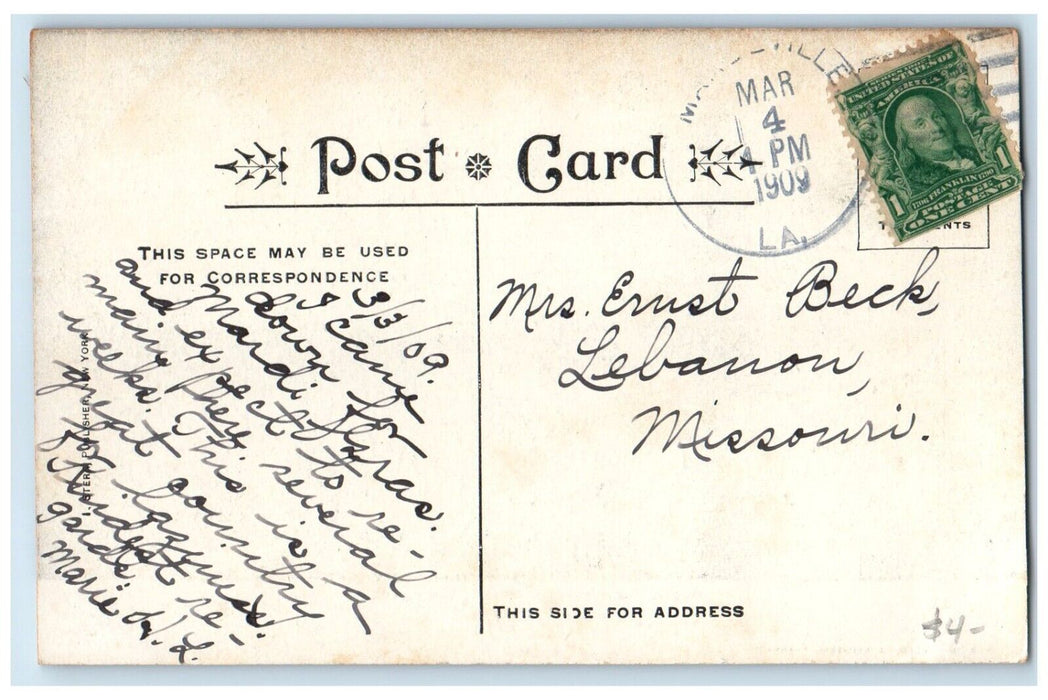 Post Card
MAR
4
PM
1909
LA.
UNITED STATES OF
AMERICA
1706 FRANKLIN 1790
1 POSTAGE 1
ONE CENT
CENTS
THIS SPACE MAY BE USED
FOR CORRESPONDENCE
3/3/09.
I came
down for
Mardi Gras.
and expect to re-
main here several
weeks. This is a
great country
for laziness.
Kindest re-
gards,
Marie L.
STERN PUBLISHER, NEW YORK
Mrs. Ernst Beck,
Lebanon,
Missouri.
THIS SIDE FOR ADDRESS
$4-